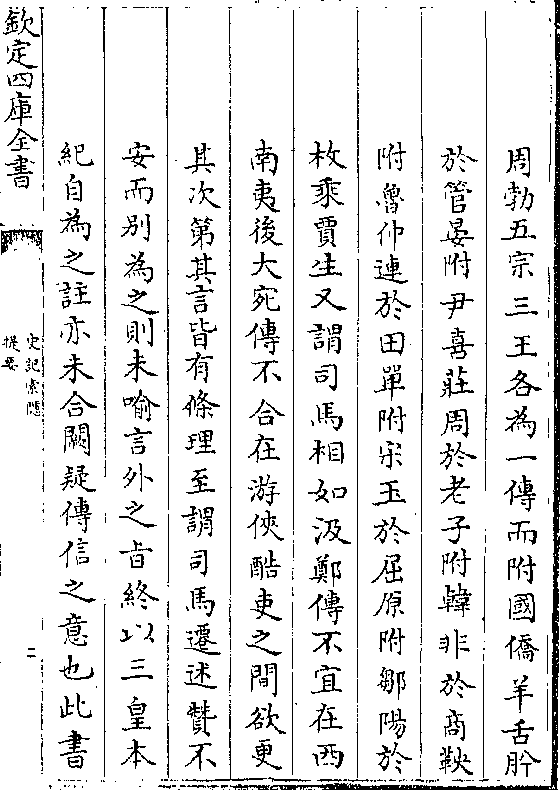 周勃五宗三王各為一傳而附國僑羊舌肹
於管晏附尹喜莊周於老子附韓非於商鞅
附魯仲連於田單附宋玉於屈原附鄒陽於
枚乘賈生又謂司馬相如汲鄭傳不宜在西
南夷後大宛傳不合在游俠酷吏之間欲更
其次第其言皆有條理至謂司馬遷述贊不
安而别為之則未喻言外之旨終以三皇本
紀自為之註亦未合闕疑傳信之意也此書
欽定四庫全書
史記索隱
提要
二